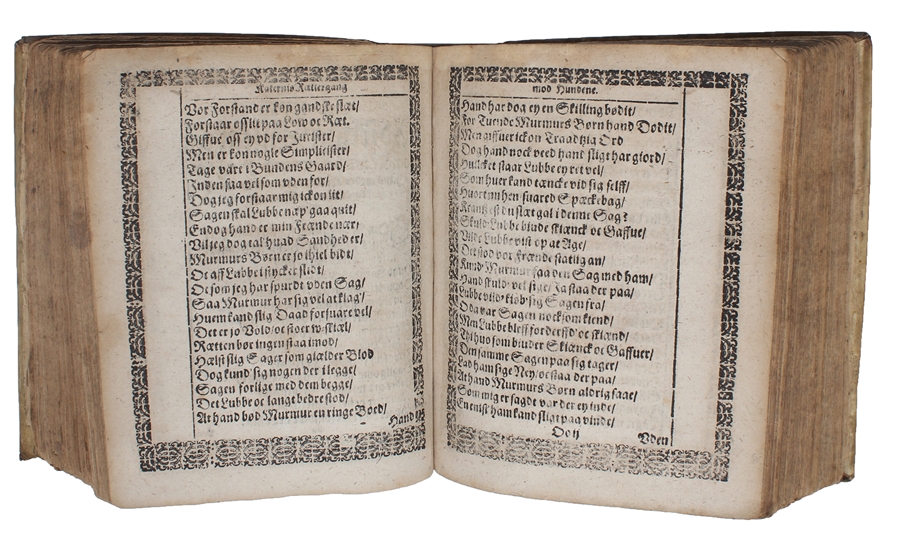 Katernis Rettergang
Vor Forstand er kon gandske slæt/
Forstaar oss lit paa Low oc Ræt.
Giffue oss ey vd for Jurister/
Men er kon nogle Simplicister/
Tage vare i Bundens Gaard/
Inden saa vel som vden for/
Dog jeg forstaar mig ickon lit/
Sagen skal Lubbe næp' gaa quit/
Endog hand er min Frænde nær/
Vil jeg dog tal huad Sandhed er/
Murmurs Børn er jo ihiel bidt/
Oc aff Lubbe i stycker slidt/
Oc som jeg har spurdt vden Sag/
Saa Murmur har sig vel at klag/
Huem kand slig Daad forsuare vel/
Det er jo Vold/oc stoer wskiæl/
Rætten bør ingen staa imod/
Hælst slig Sager som gielder Blod
Dog kund sig nogen der i legge/
Sagen forlige med dem begge/
Det Lubbe oc langt bedre stod/
At hand bød Murmur en ringe Boed/
Hand
mod Hundene.
Hand har dog ey en Skilling bødit/
For Tuende Murmurs Børn hand Dødit/
Men giffuer ickon Traadtzig Ord
Dog hand nock veed hand sligt har giord/
Huilcket staar Lubbe ey ret vel/
Som huer kand tæncke vid sig selff/
Huortimhen suared Spæckebag/
Krantz est du slæt gal i denne Sag?
Skuld Lubbe biude skiænck oc Gaffue/
Vilde Lubbe vist ey at Age/
Det stod vor Frænde statlig an/
Kund Murmur faa den Sag med ham/
Hand skuld vel sige/ Ja staa der paa/
Lubbe vild kiøb' sig Sagen fra/
Oc da var Sagen nocksom kiend/
Men Lubbe bleff forderffd' oc skiænd/
Thi huo som biuder Skiænck oc Gaffuer/
Den samme Sagen paa sig tager/
Lad ham sige Ney/ oc staa der paa/
At hand Murmurs Børn aldrig saae/
Som mig er sagdt var der ey inde/
En enist ham kand sligt paa vinde/
Vden